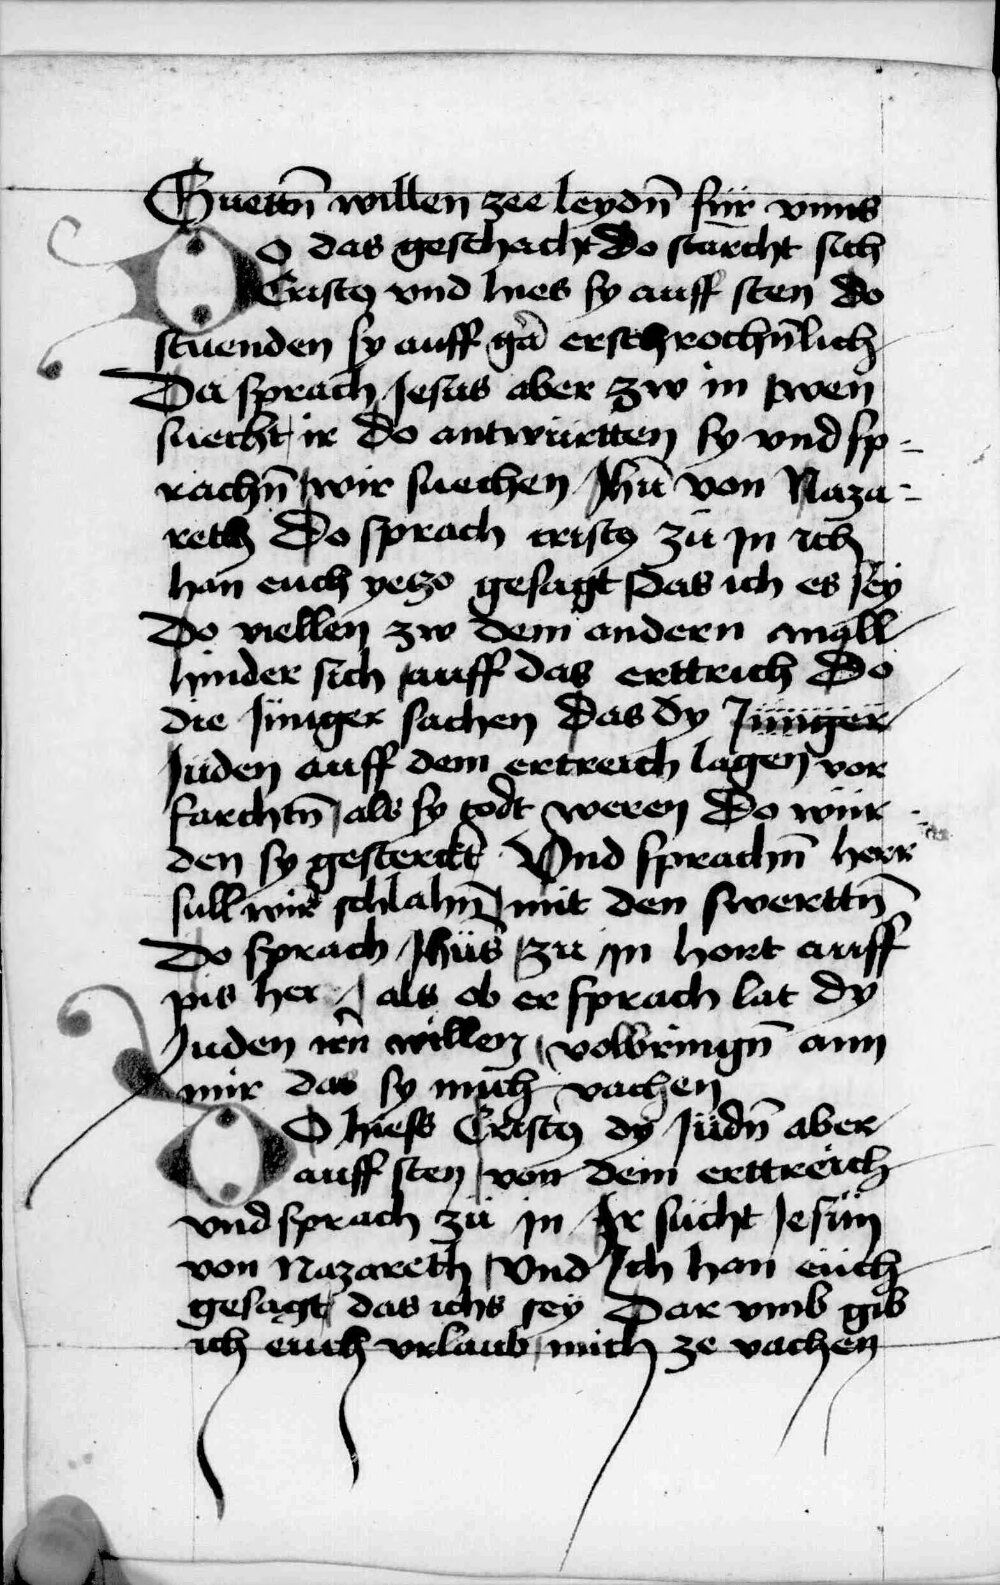 Guettn̄ willen zee leydn̄ für vnns
Do das geschacht Do starcht sich
Cristꝯ vnd hies sy auff sten Do
stuenden sy auff gar erschrochn̄lich
Da sprach Jesus aber zw in wen
suecht ir Do antwürtten sy vnd sp-
rachn̄ wir suechen Jhū von Naza-
reth Do sprach cristꝯ zu jn ich
han euch yetzo gesagt Das ich es sey
Do viellen zw dem andern mall
hinder sich auff das erttrich Do
die Jünger sachen Das dy Jünger
Juden auff dem ertreich lagen vor
farchtn̄ als sy todt weren Do wür-
den sy gesterckt Vnd sprachn̄ herr
sull wir schlahn̄ mit den swerttn̄
Do sprach Jhüs zu jn hort auff
pis her als ob er sprach lat dy
Juden irn̄ willen volbringn̄ ann
mir das sy mich vachen
Do hiess Cristꝯ dy Jüdn̄ aber
auff sten von dem erttreich
vnd sprach zü jn Ir sücht Jesün
von Nazareth Vnd Ich han eüch
gesagt das ichs sey Dar vmb gib
ich euch vrlaub mich ze vachen